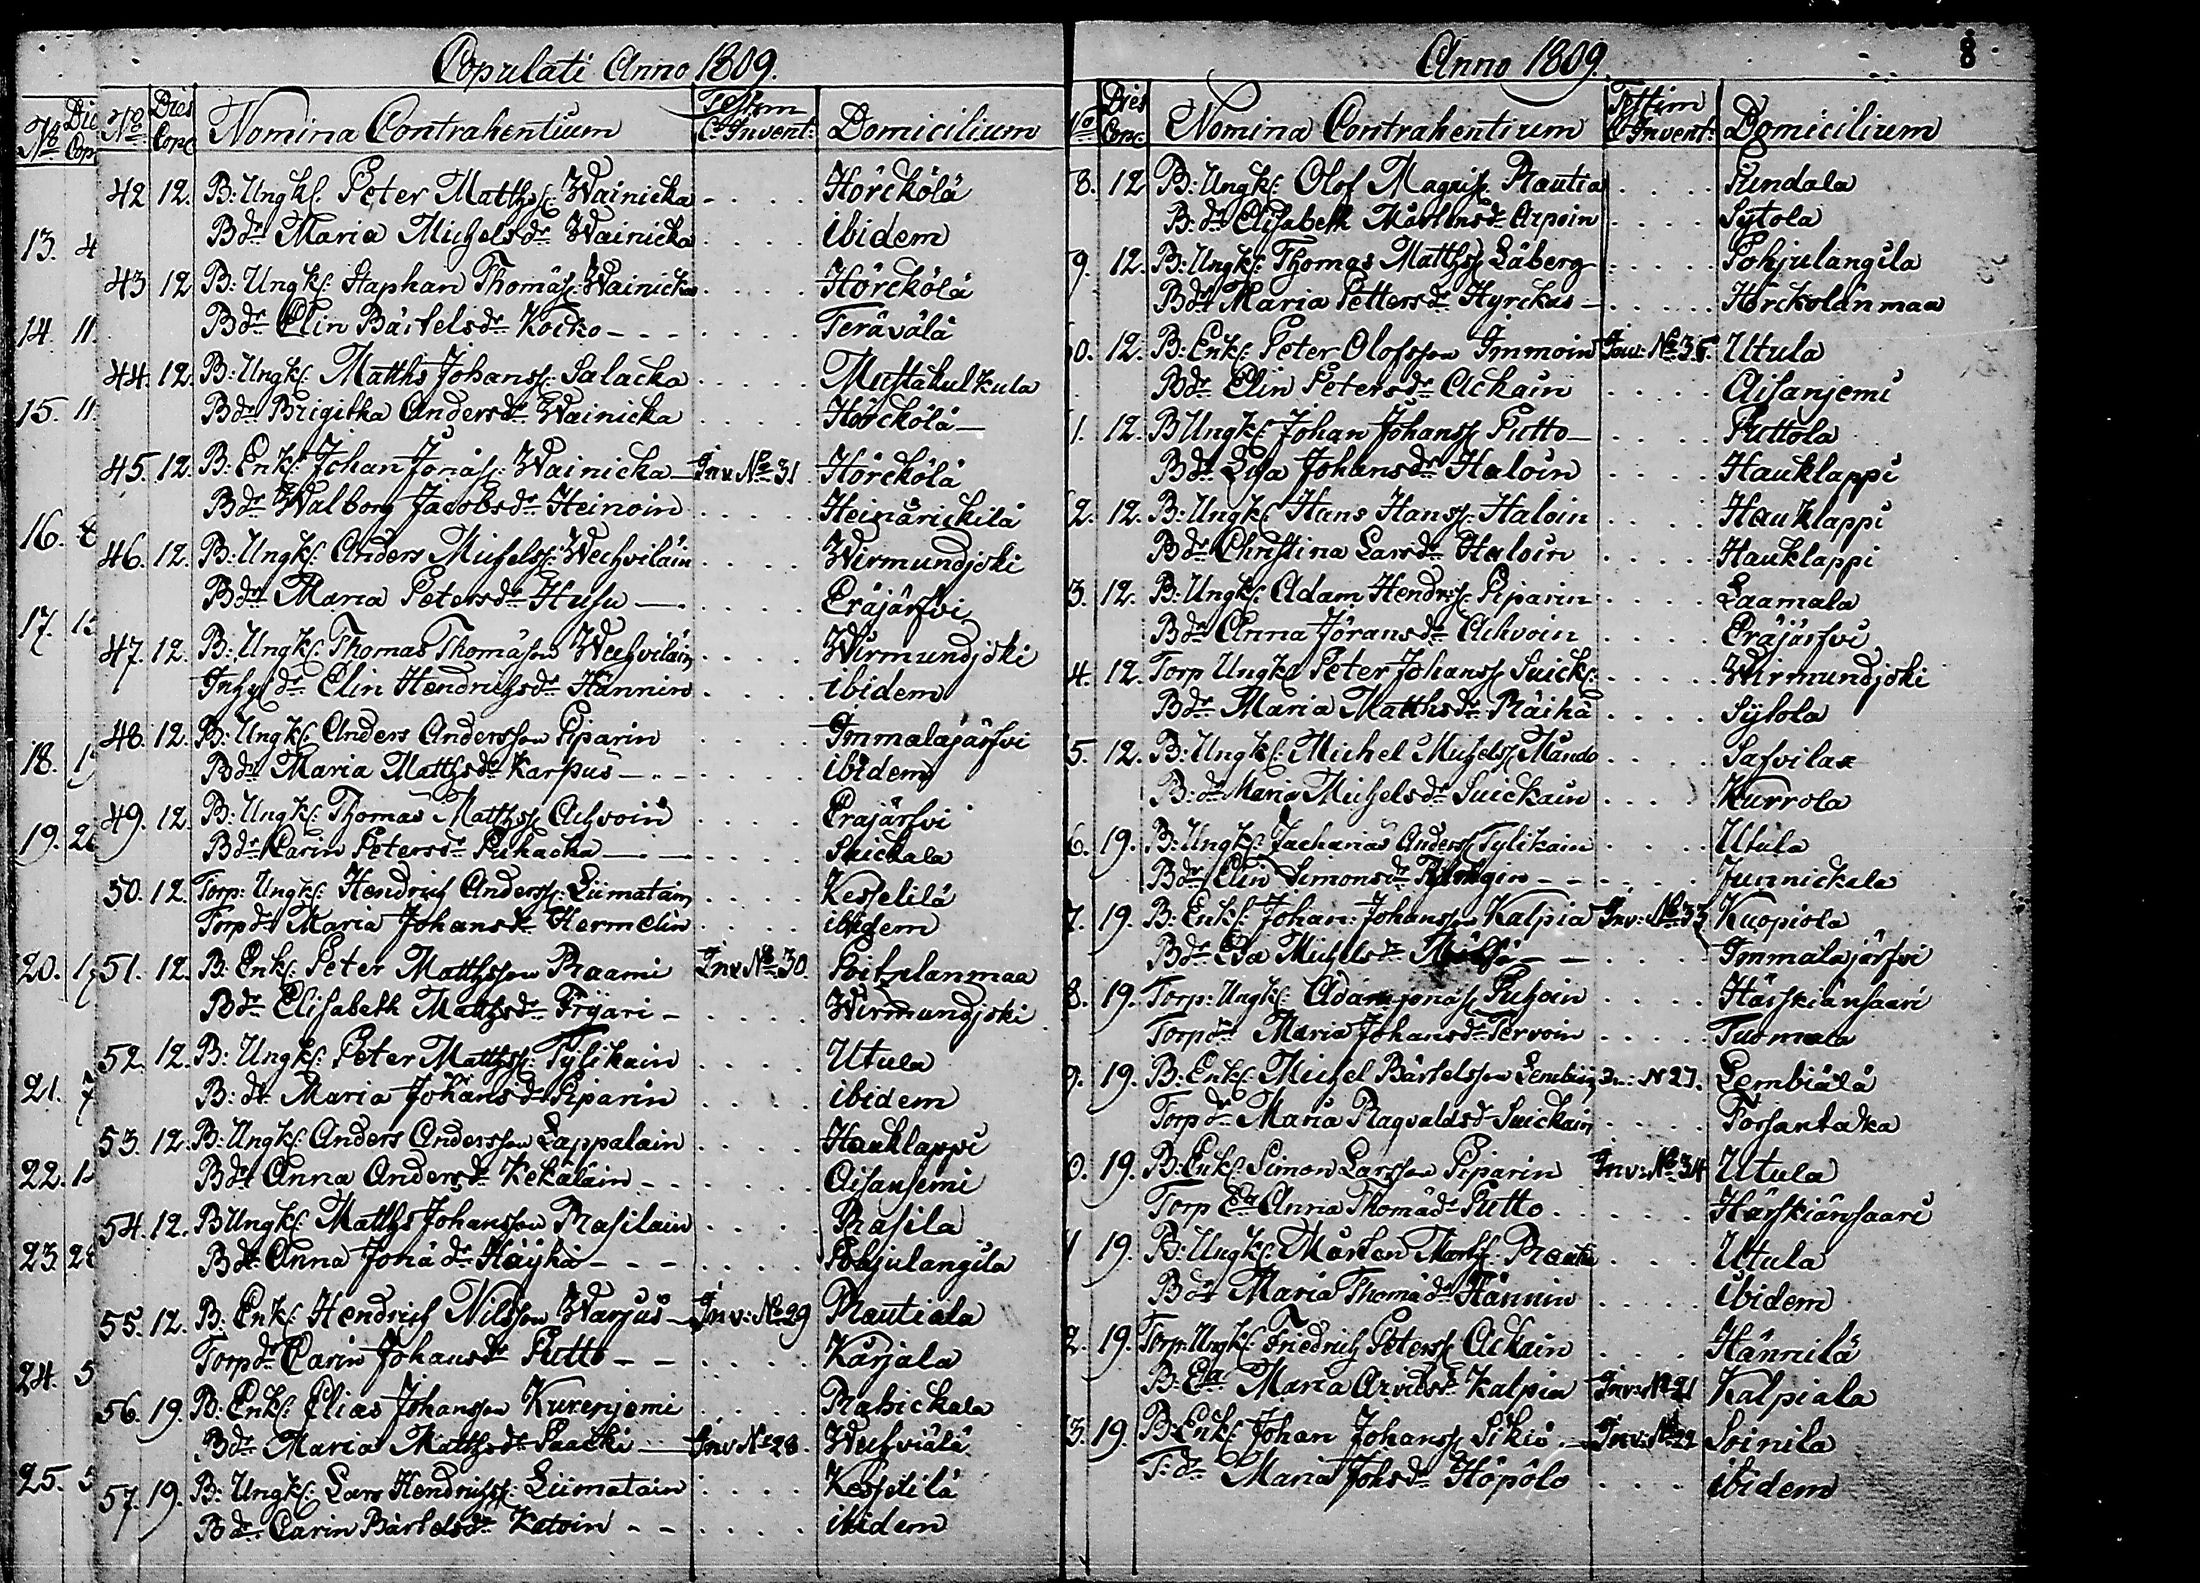 Copulati Anno 1809.
No Dies Copul Nomina Contrahentium Testim & Invent: Domicilium
42 12. B: Ungk. Peter Matthss: Wainicka Hörckölä
Bdr Maria Michelsdr Wainicka ibidem
43 12 B: Ungk: Staphan Thomass: Wainicka Hörckölä
Bdr Elin Bärtelsdr Kocko Terävälä
44. 12. B: Ungk: Matths Johanss: Salacka Mustakulkula
Bdr Brigitha Andersdr Wainicka Hörckölä
45. 12. B: Enk: Johan Jonäss: Wainicka Inv No 31 Hörckölä
Bdr Walborg Jacobsdr Heinoin Heinärickilä
46. 12. B: Ungk: Anders Michelss: Wechviläin Wirmundjoki
Bdr Maria Petersdr Husu Eräjärfvi
47. 12. B: Ungk: Thomas Thomäson Wechviläin Wirmundjoki
Inhys dr Elin Hendrichsdr Hännin ibidem
48. 12. B: Ungk: Anders Andersson Piparin Immalajärfvi
Bdr Maria Matthsdr Karpus ibidem
49. 12. B: Ungk: Thomas Matthss Achvoin Eräjärfvi
Bdr Carin Petersdr Puhacka Suickala
50. 12. Torp: Ungk: Hendrich Anderss: Liimatain Kesselilä
Torpdr Maria Johansdr Hermelin ibidem
51. 12. B: Enk: Peter Matthsson Raami Inv No 30 Soitulanmaa
Bdr Elisabeth Matthsdr Fryäri Wirmundjoki
52. 12. B: Ungk: Peter Matthss: Tylikain Utula
B: dr Maria Johansdr Piparin ibidem
53. 12. B: Ungk: Anders Andersson Lappalain Hauklappi
Bdr Anna Andersdr Kekäläin
54. 12. B Ungk: Matths Johansson Rasilain Rasila
Bdr Anna Jonädr Häyhä Pohjulangila
55. 12. B: Enk: Hendrich Nilsson Warpus Inv: No 29 Rautiala
Torpdr Carin Johansdr Putto Kärjala
56. 19. B: Enk: Elias Johansson Kurenjemi Rahickala
Bdr Maria Matthsdr Paacki Inv No 28. Wechviälä
57. 19. B: Ungk: Lars Hendrichss: Liimatain Kesselilä
Bdr Carin Bärtelsdr Katoin ibidem
Anno 1809. 8
No Dies Cop: Nomina Contrahentium Testim & Invent: Domicilium
8. 12 B: Ungk: Olof Magniss: Rautia Pundala
B: dr Elisabeth Mårtensdr Arpoin Sytola
9. 12. B: Ungk: Thomas Matthss Låberg Pohjulangila
Bdr Maria Pettersdr Hyrckas Hörckolänmaa
0. 12. B: Enk: Peter Olofsson Immoin Inv: No 35. Utula
Bdr Elin Petersdr Ackain Aisanjemi
1. 12. B Ungk: Johan Johanss Putto Puttola
Bdr Lisa Johansdr Haloin Hauklappi
2. 12. B: Ungk: Hans Hanss: Haloin Hauklappi
Bdr Christina Larsdr Haloin Hauklappi
3. 12. B: Ungk: Adam Hendrss: Piparin Laamala
Bdr Anna Jöransdr Achvoin Eräjärfvi
4. 12. Torp Ungk: Peter Johanss Suick: Wirmundjoki
Bdr Maria Matthsdr Räihä Sytola
5. 12. B: Ungk: Michel Michelss Måndo Safvilax
B: dr Maria Michelsdr Suickain Kurrola
6. 19. B: Ungk: Zacharias Anderss Tylikain Utula
Bdr Elin Simonsdr Junnickala
7. 19. B: Enk: Johan: Johansson Kalpia Inv: No 33 Kuopiola
Bdr Eva Michelsdr Immalajärfvi
8. 19. Torp: Ungk: Adam Jonäss Puhoin Härskiänsaari
Torpdr Maria Johansdr Tervoin Tuomala
9. 19. B: Enk: Michel Bärtelsson Lembiäi Inv: N 27. Lembiälä
Torp dr Maria Ragvaldsdr Suickain Torsantaka
0. 19. B: Enk: Simon Larsson Piparin Inv: No 34 Utula
Torp Ea Anna Thomädr Putto Härskiänsaari
1 19. B: Ungk: Mårten Rautia Utula
Bdr Maria Thomädr Hännin ibidem
2. 19. Torp: Ungk: Friedrich Peterss Ackain Hännilä
B: Ea Maria Arvidsdr Kalpia Inv: No 21 Kalpiala
3. 19. B: Enk: Johan Johanss Sikiö Inv: No 22 Soinila
T: dr Maria Johsdr Höpölö ibidem
13. 4
14. 11.
15. 11.
16.
17. 15
18.
19.
20. 17
21. 7
22.
23 28
24. 5
25. 5